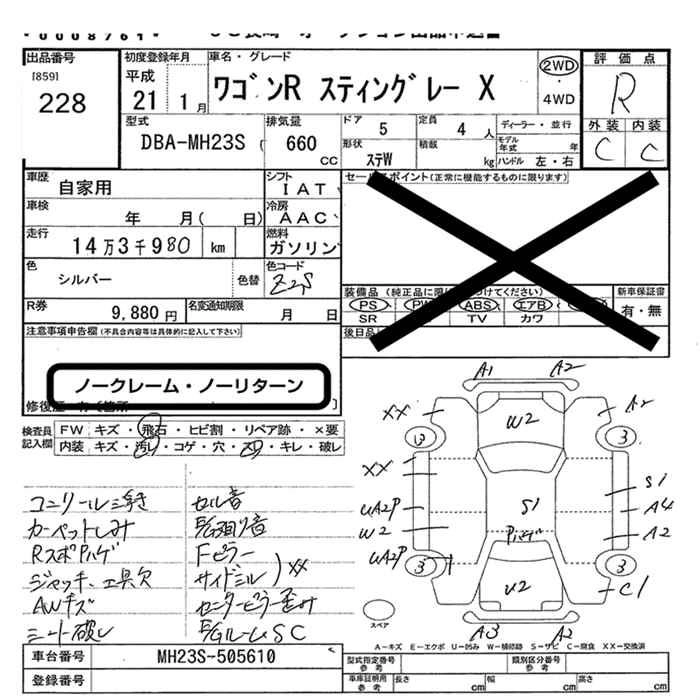 出品番号
[859]
228
初度登録年月
平成
21 1月
車名・グレード
ワゴンR スティングレー X
2WD
・
4WD
評価点
R
外装 内装
C C
型式
DBA-MH23S
排気量
660
CC
ドア
5
定員
4 人
形状
ステW
積載
kg
ディーラー・並行
モデル年式
年
ハンドル 左・右
車歴
自家用
シフト
IAT
車検
年 月( 日)
冷房
AAC
走行
14万3千980 km
燃料
ガソリン
色
シルバー
色替
色コード
Z2S
R券
9,880 円
名変通知期限
月 日
注意事項申告欄(不具合内容等は具体的に記入して下さい)
ノークレーム・ノーリターン
セールスポイント(正常に機能するものに限ります)
装備品
PS PW ABS エアB
SR TV カワ
新車保証書
有・無
後日品
検査員記入欄
FW キズ・飛石・ヒビ割・リペア跡・×要
内装 キズ・汚レ・コゲ・穴・スレ・キレ・破レ
カーペットシミ
ジャッキ、工具欠
AWキズ
シート破レ
セル音
Fピラー
サイドシル
XX
センターピラー歪み
A1 A2
XX W2 A2
3
XX
UA2P S1 S1
A4
W2 A2
UA2P
3 3
W2 C1
A3 A2
スペア
A-キズ E-エクボ U-凹み W-補修跡 S-サビ C-腐食 XX-交換済
車台番号
MH23S-505610
登録番号
型式指定番号
参考
類別区分番号
参考
車庫証明用
参考
長さ cm
幅 cm
高さ cm